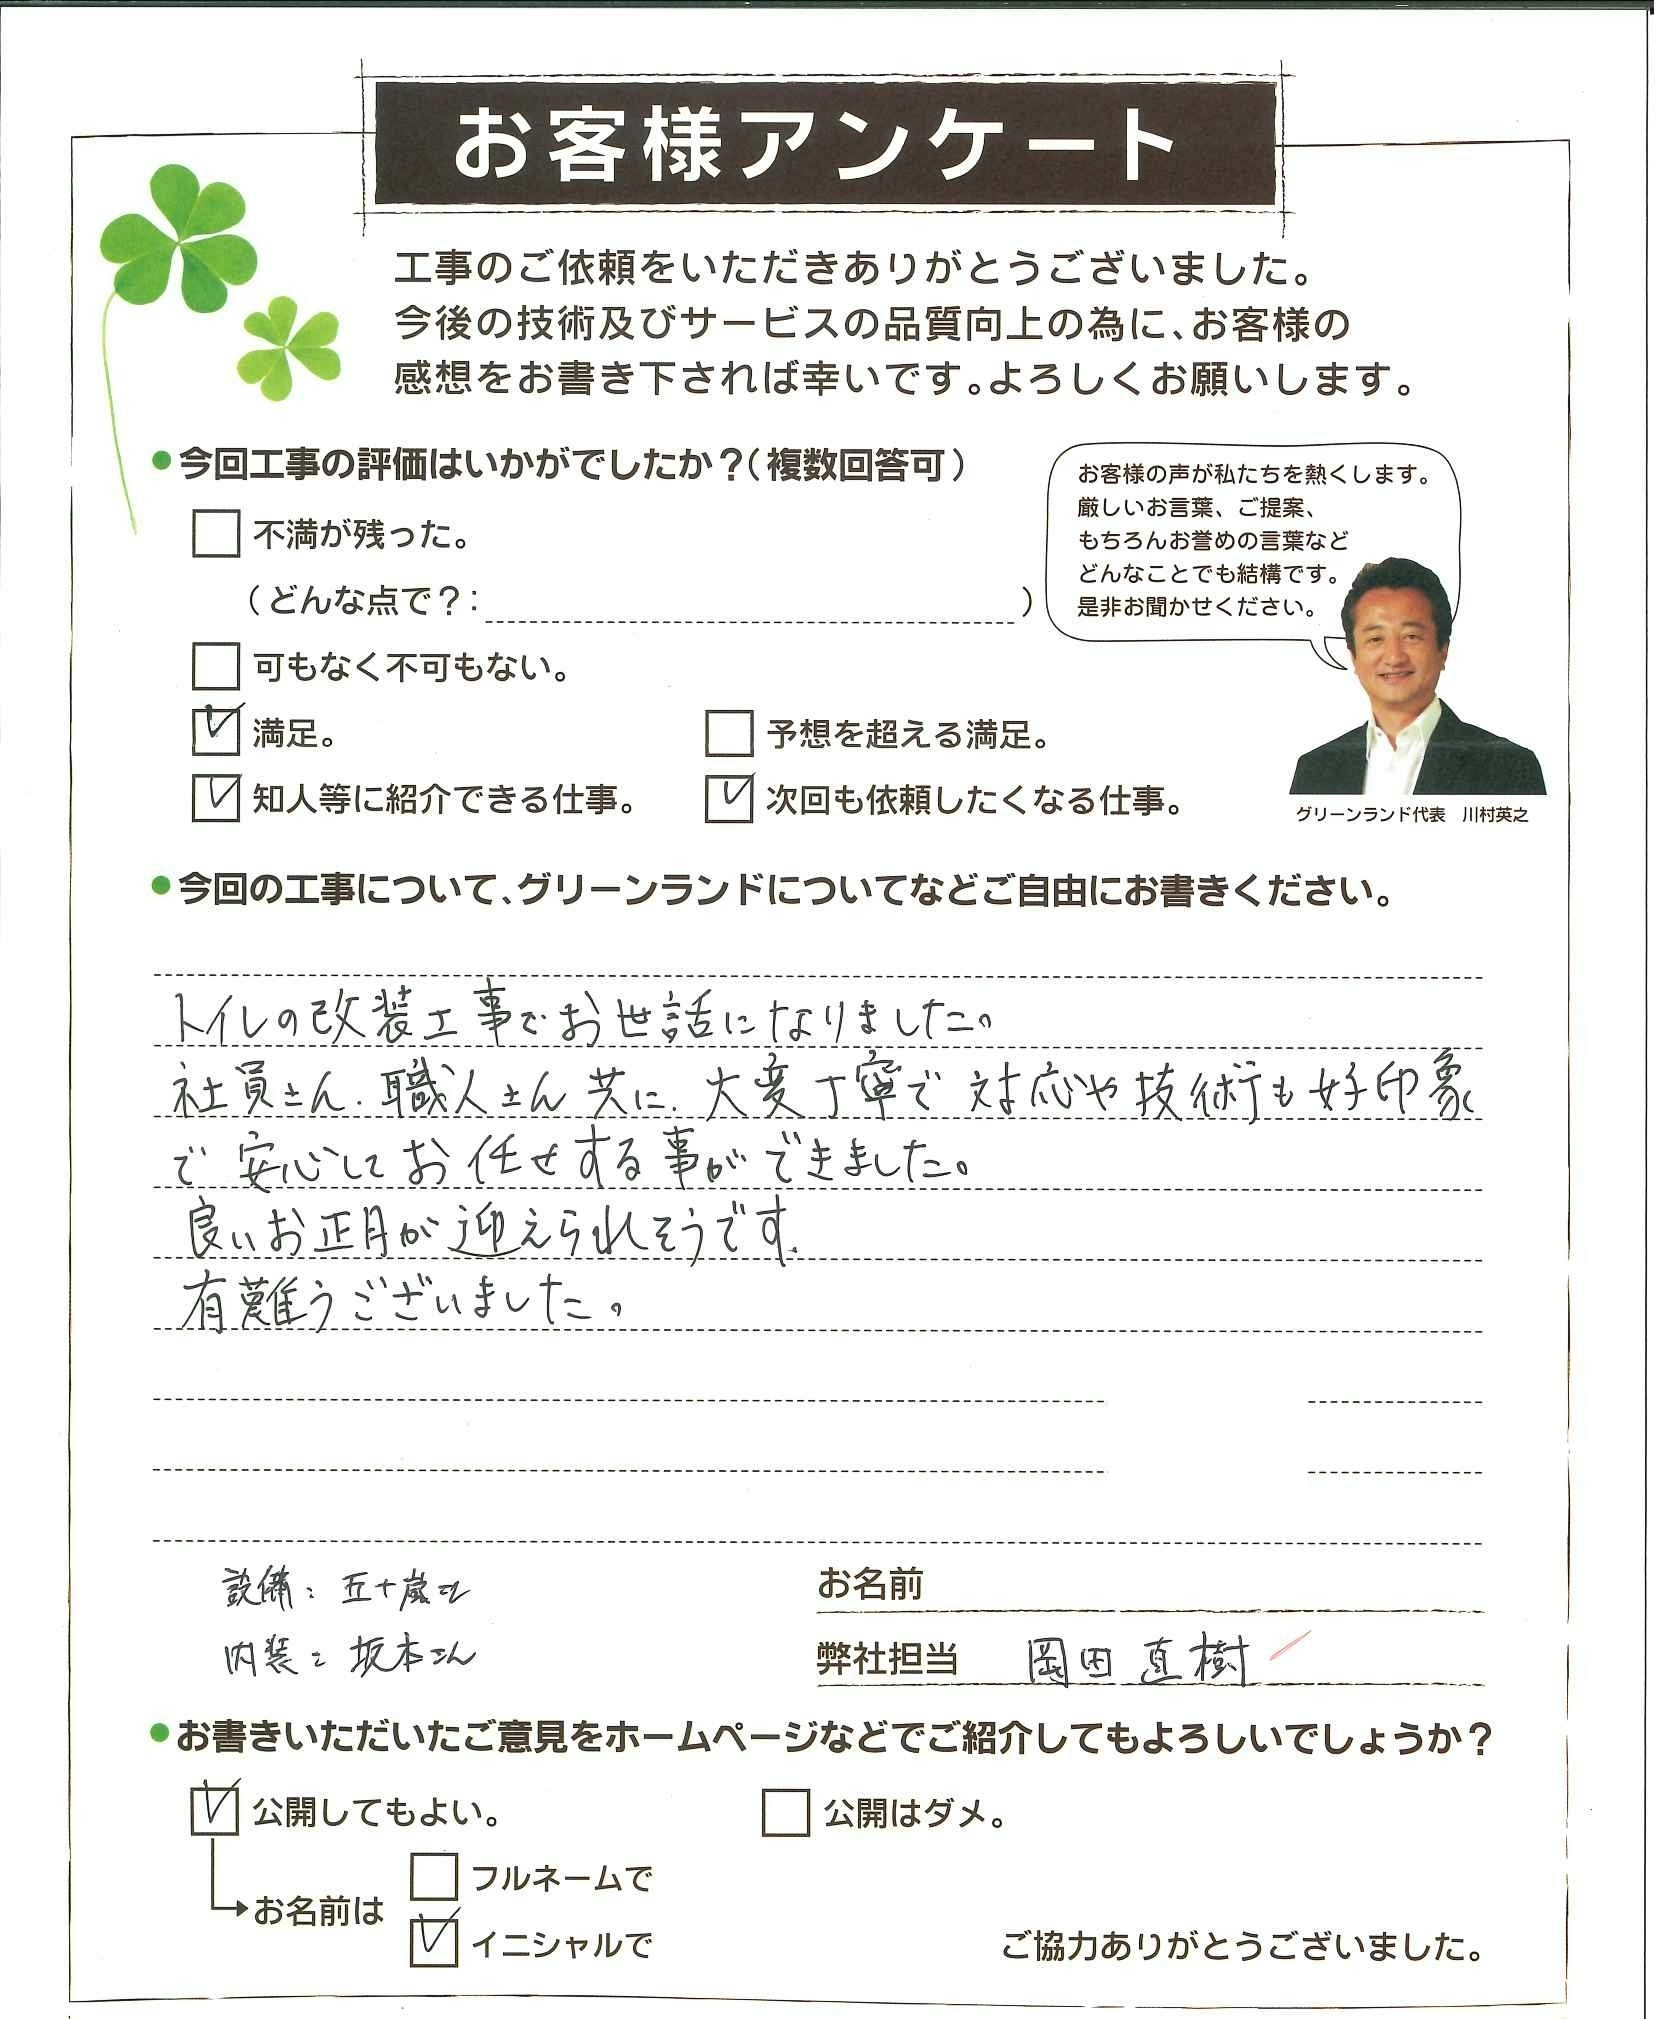 お客様アンケート
工事のご依頼をいただきありがとうございました。
今後の技術及びサービスの品質向上の為に、お客様の
感想をお書き下されば幸いです。よろしくお願いします。
●今回工事の評価はいかがでしたか？(複数回答可)
不満が残った。
(どんな点で？: )
可もなく不可もない。
満足。
予想を超える満足。
知人等に紹介できる仕事。
次回も依頼したくなる仕事。
お客様の声が私たちを熱くします。
厳しいお言葉、ご提案、
もちろんお誉めの言葉など
どんなことでも結構です。
是非お聞かせください。
グリーンランド代表　川村英之
●今回の工事について、グリーンランドについてなどご自由にお書きください。
トイレの改装工事でお世話になりました。
社員さん、職人さん共に、大変丁寧で対応や技術も好印象
で安心してお任せする事ができました。
良いお正月が迎えられそうです.
有難うございました。
設備：五十嵐さん
内装：坂本さん
お名前
弊社担当　岡田 直樹
●お書きいただいたご意見をホームページなどでご紹介してもよろしいでしょうか？
公開してもよい。
公開はダメ。
お名前は
フルネームで
イニシャルで
ご協力ありがとうございました。